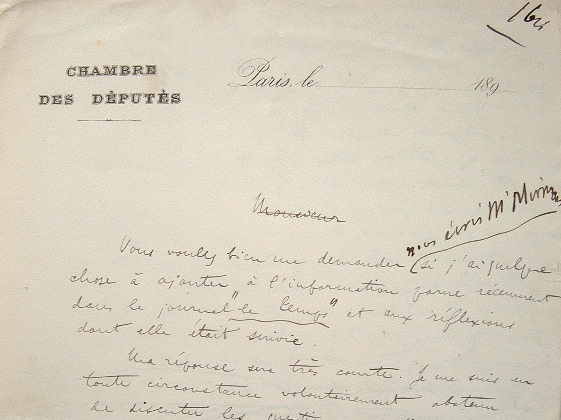 164
CHAMBRE
DES DÉPUTÉS
Paris, le 189
Monsieur
nous écrit Mr
Vous voulez bien me demander si j'ai quelque
chose à ajouter à l'information parue récemment
dans le journal "le temps" et aux réflexions
dont elle était suivie.
Ma réponse sera très courte. Je me suis en
toute circonstance volontairement abstenu
de discuter les